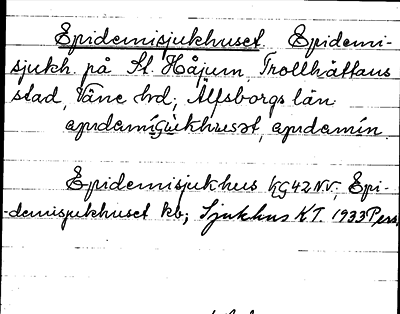 Epidemisjukhuset Epidemi-
sjukh. på St. Håjum, Trollhättans
stad, Väne hd; Älfsborgs län.
Epidemisjukhus kg 42 NV; Epi-
-demisjukhuset kb; Sjukhus KT. 1933 Pers.